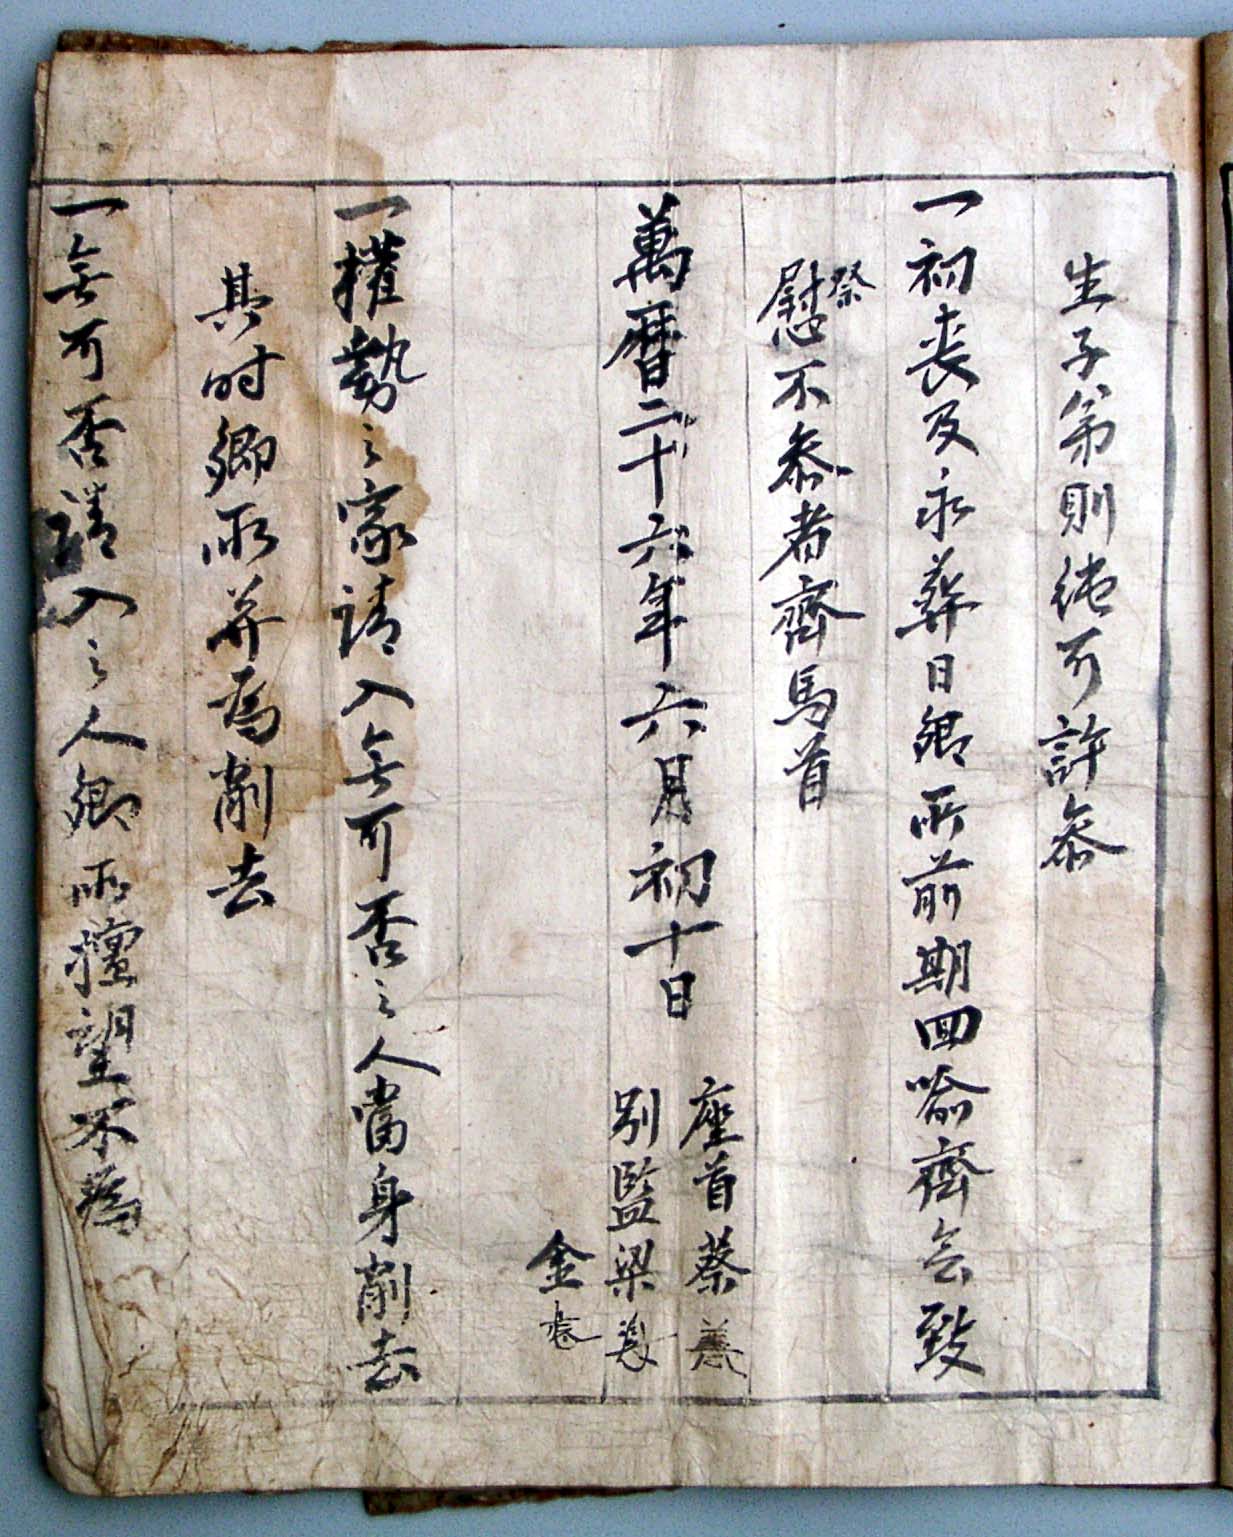 生子弟則可許叅
一初丧及永葬日鄕所前期回喩齊会致
慰祭不叅者齊馬首
萬暦二十六年六月初十日
座首蔡
别監梁
金
一權勢之家請入無可否之人當身削去
其时鄕所并爲削去
一無可否請入之人鄕所擅望不爲